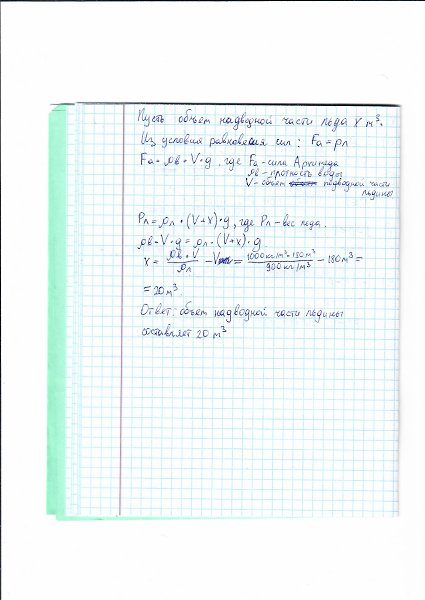 Пусть объем надводной части льда x м³.
Из условия равновесия сил: Fa = Pл
Fa = ρв • V • g, где Fa - сила Архимеда
ρв - плотность воды
V - объем подводной части
льдины
Pл = ρл • (V+x) • g, где Pл - вес льда.
ρв • V • g = ρл • (V+x) • g
x = ρв • V / ρл - V = 1000 кг/м³ • 180 м³ / 900 кг/м³ - 180 м³ =
= 20 м³.
Ответ: объем надводной части льдины
составляет 20 м³